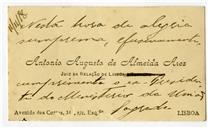 Nesta hora de alegria
suprema, efusivamente
Antonio Augusto de Almeida Arez
JUIZ DA RELAÇÃO DE LISBOA
cumprimenta o ex. Presidente
do Ministerio da União
Sagrada
Avenida das Cortes, 34, r/c, Esq. LISBOA